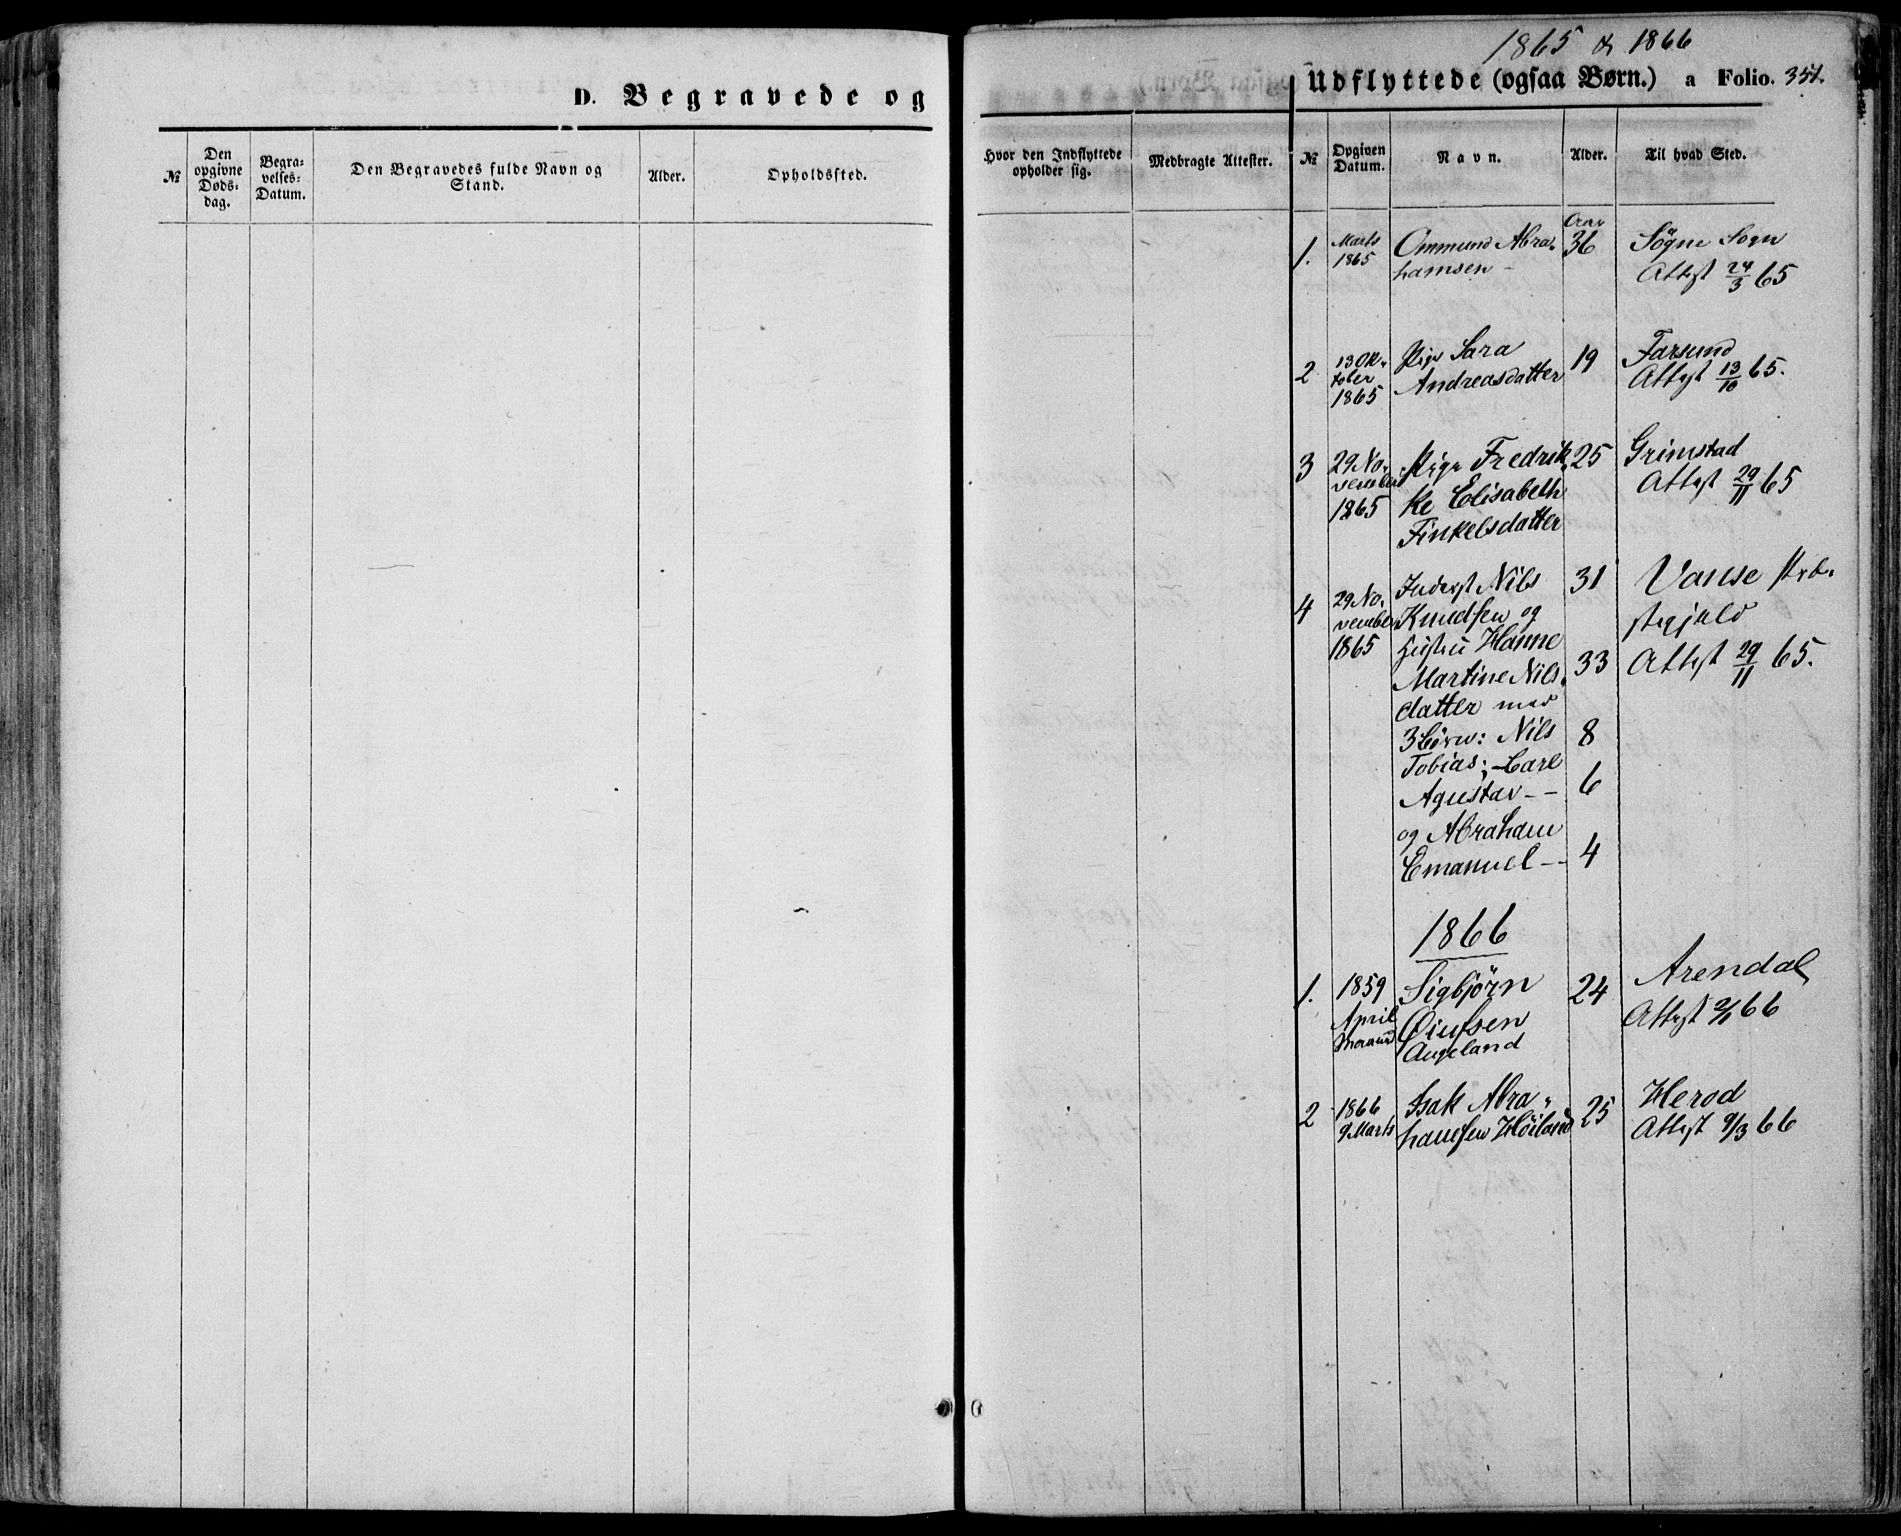 1865 & 1866
D. Begravede og
Udflyttede (ogsaa Børn.) a Folio. 351.
№
Den opgivne Døds-dag.
Begra-velses-Datum.
Den Begravedes fulde Navn og Stand.
Alder.
Opholdssted.
Hvor den Indflyttede opholder sig.
Medbragte Attester.
№
Opgiven Datum.
Navn.
Alder.
Til hvad Sted.
1. Marts Ommund Abra- Aar 36 Søgne Sogn
1865 hamsen - Attest 24/3 65
2 13 Ok- Pige Sara 19 Farsund
tober Andreasdatter Attest 13/10 65.
1865
3 29 No- Pige Fredrik 25 Grimstad
vember ke Elisabeth Attest 29/11 65
1865 Finkelsdatter
4 29 No- Inderst Nils 31 Vanse Præ-
vember Knudsen og stegjeld
1865 Hustru Hanne
Martine Nils- 33 Attest 29/11 65.
datter med
3 børn: Nils 8
Tobias; - Carl
Agustav - - 6
og Abraham
Emanuel - - 4
1866
1. 1859 Sigbjörn 24 Arendal
April Øiufsen Attest 2/1 66
Augeland
2 1866 Isak Abra- 25 Herod
9 Marts hamsen Höiland Attest 9/3 66